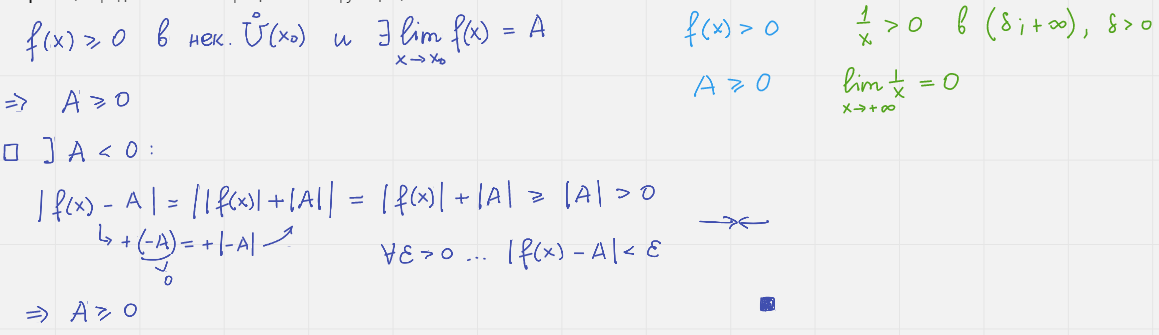 f(x) ≥ 0 в нек. Ů(x₀) и ∃ lim f(x) = A
x→x₀
⇒ A ≥ 0
□ ] A < 0 :
|f(x) - A| = ||f(x)| + |A|| = |f(x)| + |A| ≥ |A| > 0
↳ + (-A) = + |-A|
∨
0
∀ε > 0 ... |f(x) - A| < ε
→←
⇒ A ≥ 0
■
f(x) > 0
A ≥ 0
1/x > 0 в (δ; +∞), δ > 0
lim 1/x = 0
x→+∞